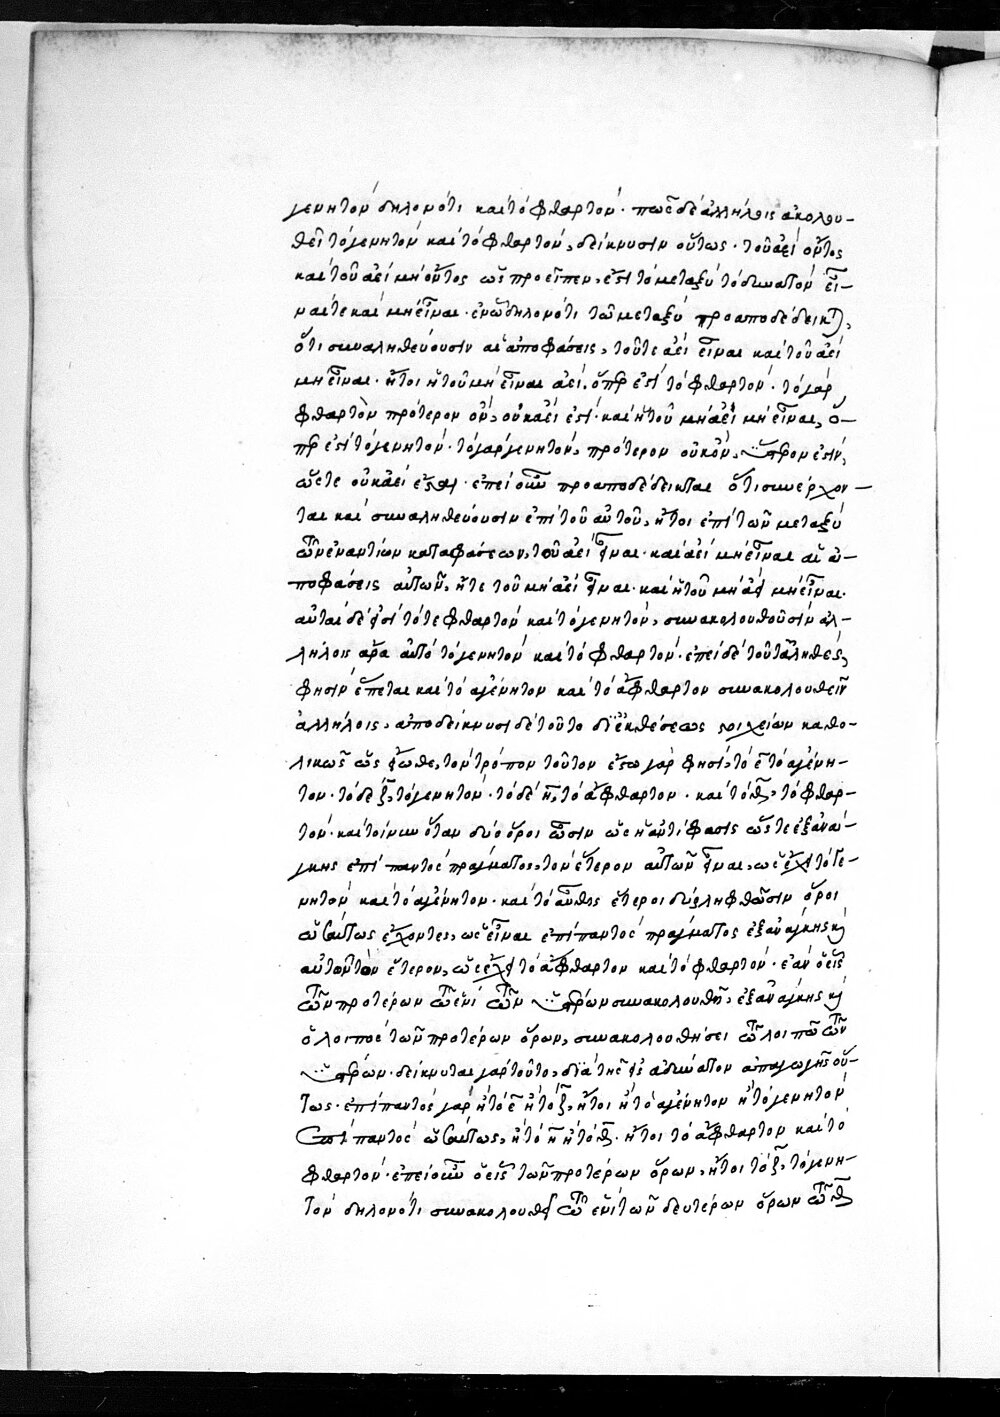 γενητὸν δηλονότι καὶ τὸ φθαρτόν. πῶς δὲ ἀλλήλοις ἀκολου-
θεῖ τὸ γενητὸν καὶ τὸ φθαρτόν, δείκνυσιν οὕτως. τοῦ ἀεὶ ὄντος
καὶ τοῦ ἀεὶ μὴ ὄντος ὡς προεῖπεν, ἐστὶ τὸ μεταξὺ τὸ δυνατὸν εἶ-
ναί τε καὶ μὴ εἶναι. ἐν ᾧ δηλονότι τῷ μεταξὺ προαποδέδεικται,
ὅτι συναληθεύουσιν αἱ ἀποφάσεις, τοῦ τε ἀεὶ εἶναι καὶ τοῦ ἀεὶ
μὴ εἶναι. ἤτοι ἡ τοῦ μὴ εἶναι ἀεί. ὅπερ ἐστὶ τὸ φθαρτόν. τὸ γὰρ
φθαρτὸν πρότερον ὂν, οὐκ ἀεί ἐστι. καὶ ἡ τοῦ μὴ ἀεὶ μὴ εἶναι, ὅ-
περ ἐστὶ τὸ γενητόν. τὸ γὰρ γενητόν, πρότερον οὐκ ὂν, ὕστερον ἐστίν,
ὥστε οὐκ ἀεὶ ἔσται. ἐπεὶ οὖν προαποδέδεικται ὅτι συνέρχον-
ται καὶ συναληθεύουσιν ἐπὶ τοῦ αὐτοῦ, ἤτοι ἐπὶ τῶν μεταξὺ
τῶν ἐναντίων καταφάσεων, τοῦ ἀεὶ εἶναι. καὶ ἀεὶ μὴ εἶναι αἱ ἀ-
ποφάσεις αὐτῶν, ἥτε τοῦ μὴ ἀεὶ εἶναι. καὶ ἡ τοῦ μὴ ἀεὶ μὴ εἶναι.
αὗται δέ εἰσι τό τε φθαρτὸν καὶ τὸ γενητόν, συνακολουθοῦσιν ἀλ-
λήλοις ἄρα αὐτὸ τὸ γενητὸν καὶ τὸ φθαρτόν. ἐπεὶ δὲ τοῦτ' ἀληθές,
φησὶν ἕπεται καὶ τὸ ἀγένητον καὶ τὸ ἄφθαρτον συνακολουθεῖν
ἀλλήλοις, ἀποδείκνυσι δὲ τοῦτο δι' ἐκθέσεως στοιχείων καθο-
λικῶς ὡς εἴωθε, τὸν τρόπον τοῦτον ἔστω γὰρ φησὶ, τὸ ε τὸ ἀγένη-
τον. τὸ δὲ ζ, τὸ γενητόν. τὸ δὲ η, τὸ ἄφθαρτον. καὶ τὸ θ, τὸ φθαρ-
τόν. καὶ τοίνυν ὅταν δύο ὅροι ὦσιν ὡς ἡ ἀντίφασις ὥστε ἐξ ἀνάγ-
κης ἐπὶ παντὸς πράγματος, τὸν ἕτερον αὐτῶν εἶναι, ὡς ἔχει τὸ γε-
νητὸν καὶ τὸ ἀγένητον. καὶ τὸ αὖθις ἕτεροι δύο ληφθῶσιν ὅροι
ὡσαύτως ἔχοντες, ὡς εἶναι ἐπὶ παντὸς πράγματος ἐξ ἀνάγκης καὶ
αὐτῶν τὸν ἕτερον, ὡς ἔχει τὸ ἄφθαρτον καὶ τὸ φθαρτόν. ἐὰν ὁ εἷς
τῶν προτέρων τῷ ἑνὶ τῶν ὑστέρων συνακολουθῇ, ἐξ ἀνάγκης καὶ
ὁ λοιπὸς τῶν προτέρων ὅρων, συνακολουθήσει τῷ λοιπῷ τῶν
ὑστέρων. δείκνυται γὰρ τοῦτο, διὰ τῆς εἰς ἀδύνατον ἀπαγωγῆς οὕ-
τως. ἐπὶ παντὸς γὰρ ἢ τὸ ε ἢ τὸ ζ, ἤτοι ἢ τὸ ἀγένητον ἢ τὸ γενητὸν
ἐπὶ παντὸς ὡσαύτως, ἢ τὸ η ἢ τὸ θ. ἤτοι τὸ ἄφθαρτον καὶ τὸ
φθαρτόν. ἐπεὶ οὖν ὁ εἷς τῶν προτέρων ὅρων, ἤτοι τὸ ζ, τὸ γενη-
τὸν δηλονότι συνακολουθεῖ τῷ ἑνὶ τῶν δευτέρων ὅρων τῷ θ